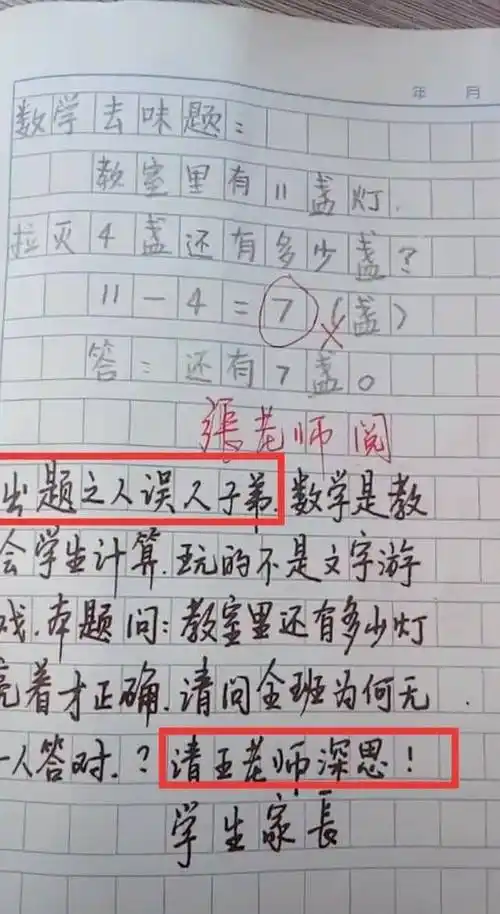 年 月
数学去味题：
教室里有11盏灯.
拉灭4盏还有多少盏？
11-4=7(盏)
答：还有7盏。
张老师阅
出题之人误人子弟.数学是教
会学生计算.玩的不是文字游
戏.本题问:教室里还有多少灯
亮着才正确.请问全班为何无
一人答对.？请王老师深思！
学生家長